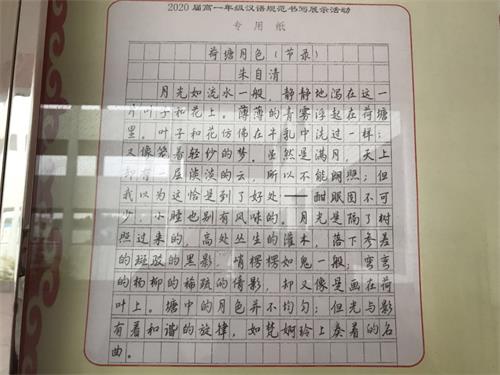 2020届高一年级汉语规范书写展示活动
专用纸
荷塘月色（节录）
朱自清
月光如流水一般，静静地泻在这一
片叶子和花上。薄薄的青雾浮起在荷塘
里。叶子和花仿佛在牛乳中洗过一样；
又像笼着轻纱的梦。虽然是满月，天上
却有一层淡淡的云，所以不能朗照；但
我以为这恰是到了好处——酣眠固不可
少，小睡也别有风味的。月光是隔了树
照过来的，高处丛生的灌木，落下参差
的斑驳的黑影，峭楞楞如鬼一般；弯弯
的杨柳的稀疏的倩影，却又像是画在荷
叶上。塘中的月色并不均匀；但光与影
有着和谐的旋律，如梵婀玲上奏着的名
曲。